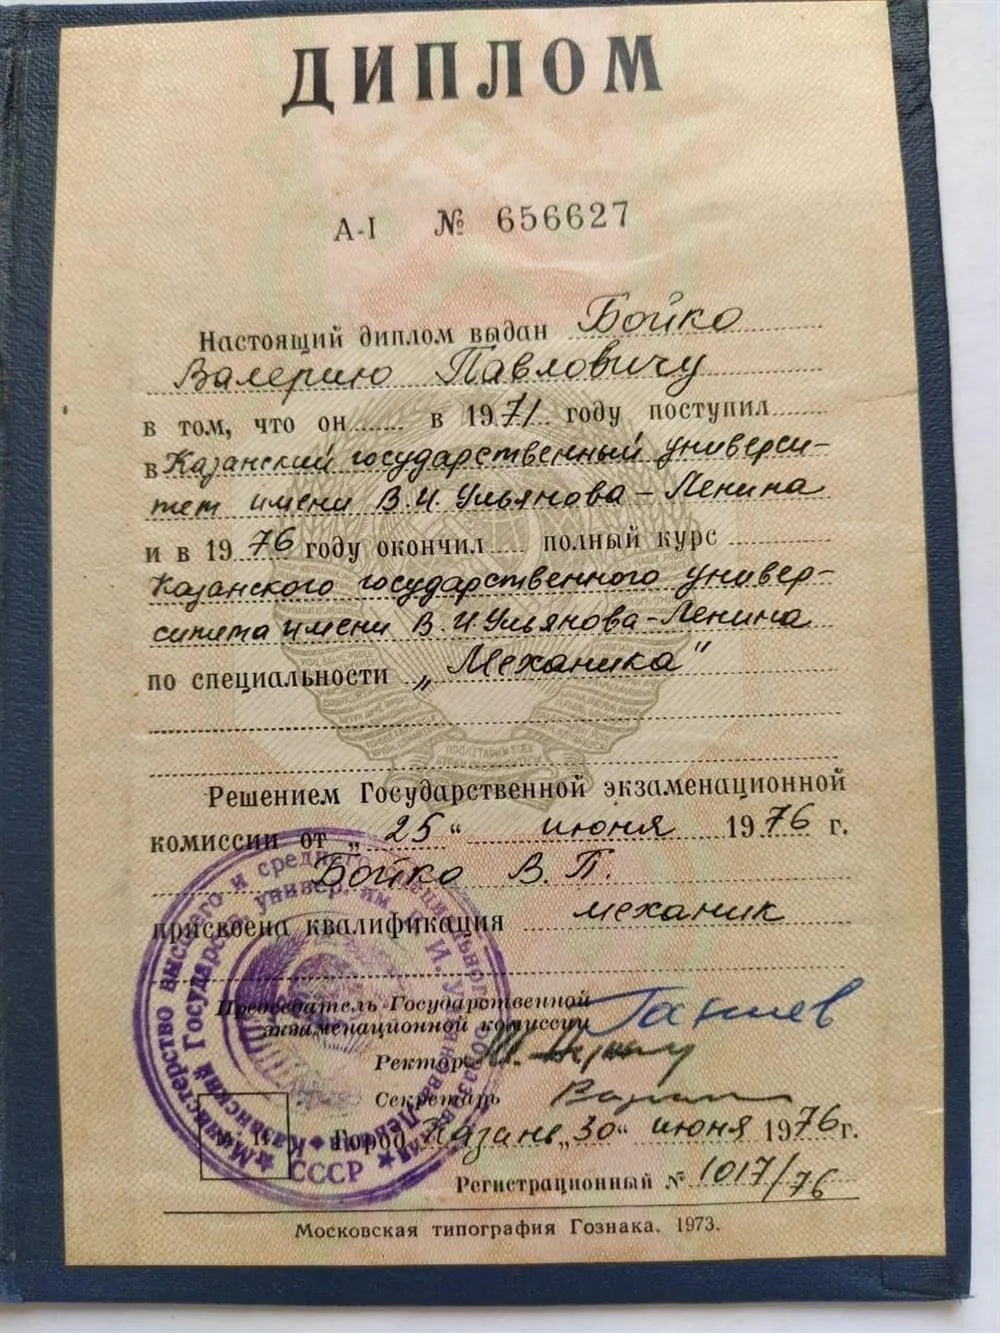 ДИПЛОМ
А-I № 656627
Настоящий диплом выдан Бойко
Валерию Павловичу
в том, что он в 1971 году поступил
в Казанский государственный универси-
тет имени В.И. Ульянова-Ленина
и в 1976 году окончил полный курс
Казанского государственного универ-
ситета имени В.И Ульянова-Ленина
по специальности „Механика"
Решением Государственной экзаменационной
комиссии от „25" июня 1976 г.
Бойко В. П.
присвоена квалификация механик
Председатель Государственной
экзаменационной комиссии
Ректор
Секретарь
Город Казань „30" июня 1976г.
Регистрационный № 1017/76
Московская типография Гознака. 1973.
Министерство высшего и среднего специального образования
СССР